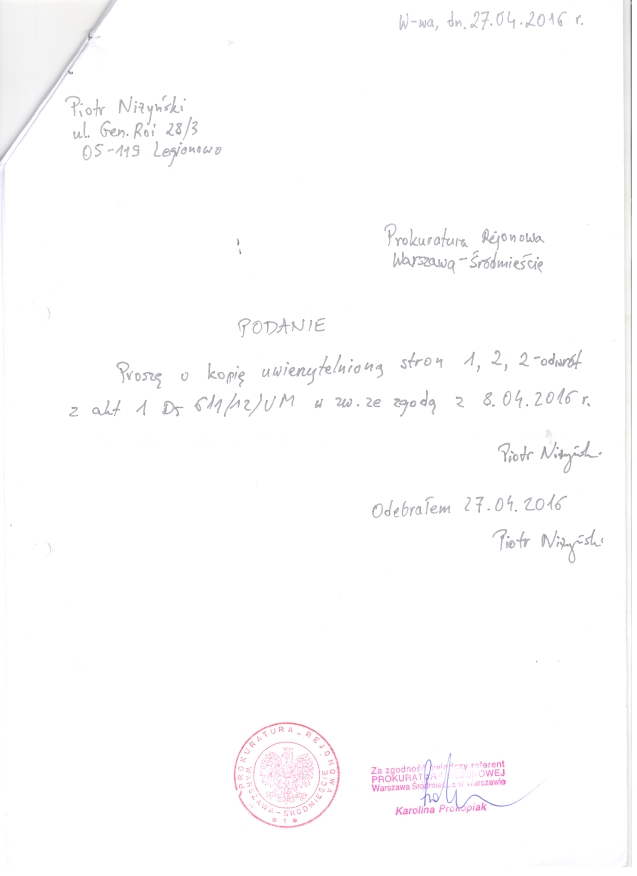 W-wa, dn. 27.04.2016 r.
Piotr Niżyński
ul. Gen. Roi 28/3
05-119 Legionowo
Prokuratura Rejonowa
Warszawa-Śródmieście
PODANIE
Proszę o kopię uwierzytelnioną stron 1, 2, 2-odwrót
z akt 1 Ds 611/12/UM w zw. ze zgodą z 8.04.2016 r.
Piotr Niżyński
Odebrałem 27.04.2016
Piotr Niżyński
PROKURATURA REJONOWA
WARSZAWA-ŚRÓDMIEŚCIE
* 1 *
Za zgodność referent
PROKURATURY REJONOWEJ
Warszawa Śródmieście w Warszawie
Karolina Prokopiak